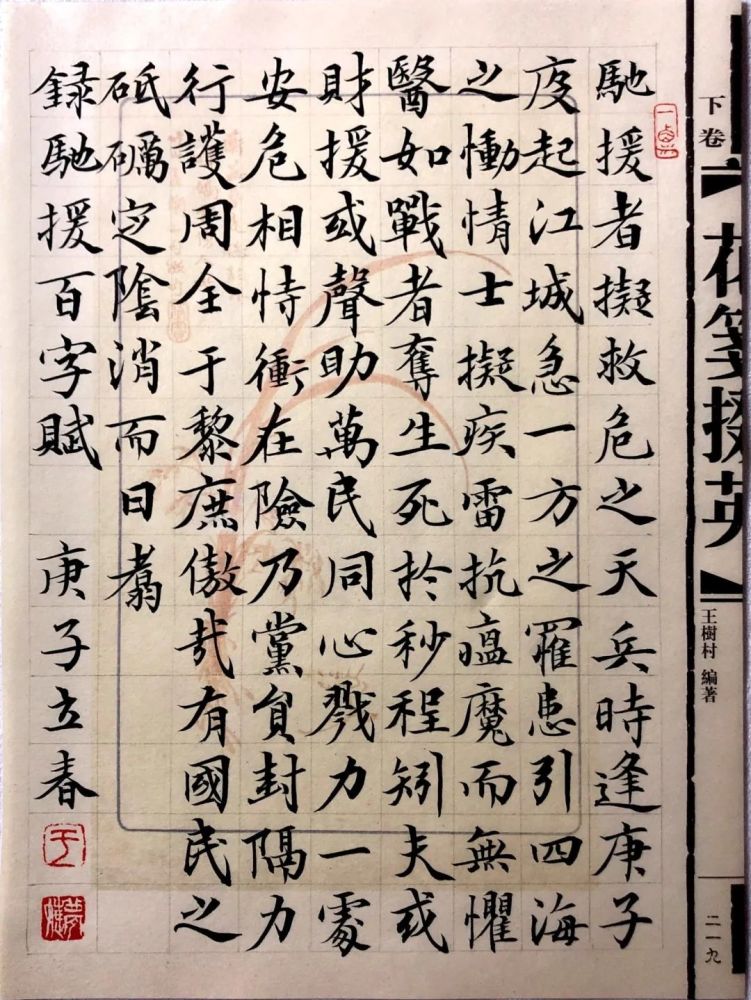 下卷
花箋掇英
王樹村 編著
二一九
馳援者擬救危之天兵時逢庚子
疫起江城急一方之罹患引四海
之慟情士擬疾雷抗瘟魔而無懼
醫如戰者奪生死於秒程矧夫或
財援或聲助萬民同心戮力一處
安危相恃衝在險乃黨負封隔力
行護周全于黎庶傲哉有國民之
砥礪定陰消而日翥
録馳援百字賦 庚子立春